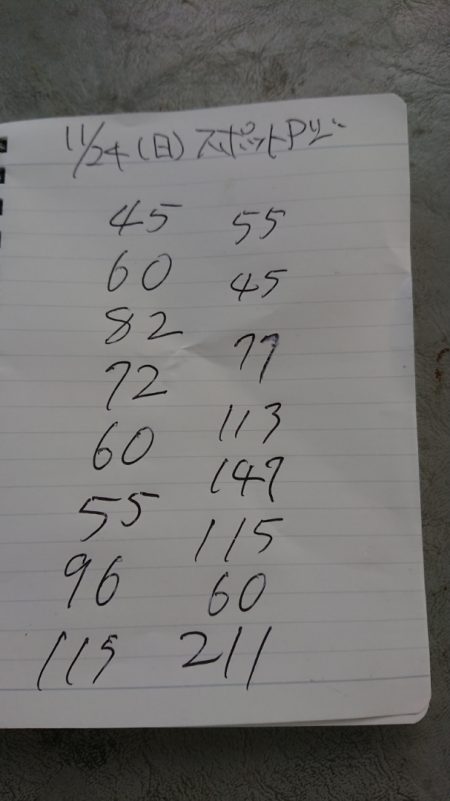 11/24(日)スポットPツー
45 55
60 45
82 77
72 113
60 147
55 115
96 60
115 211